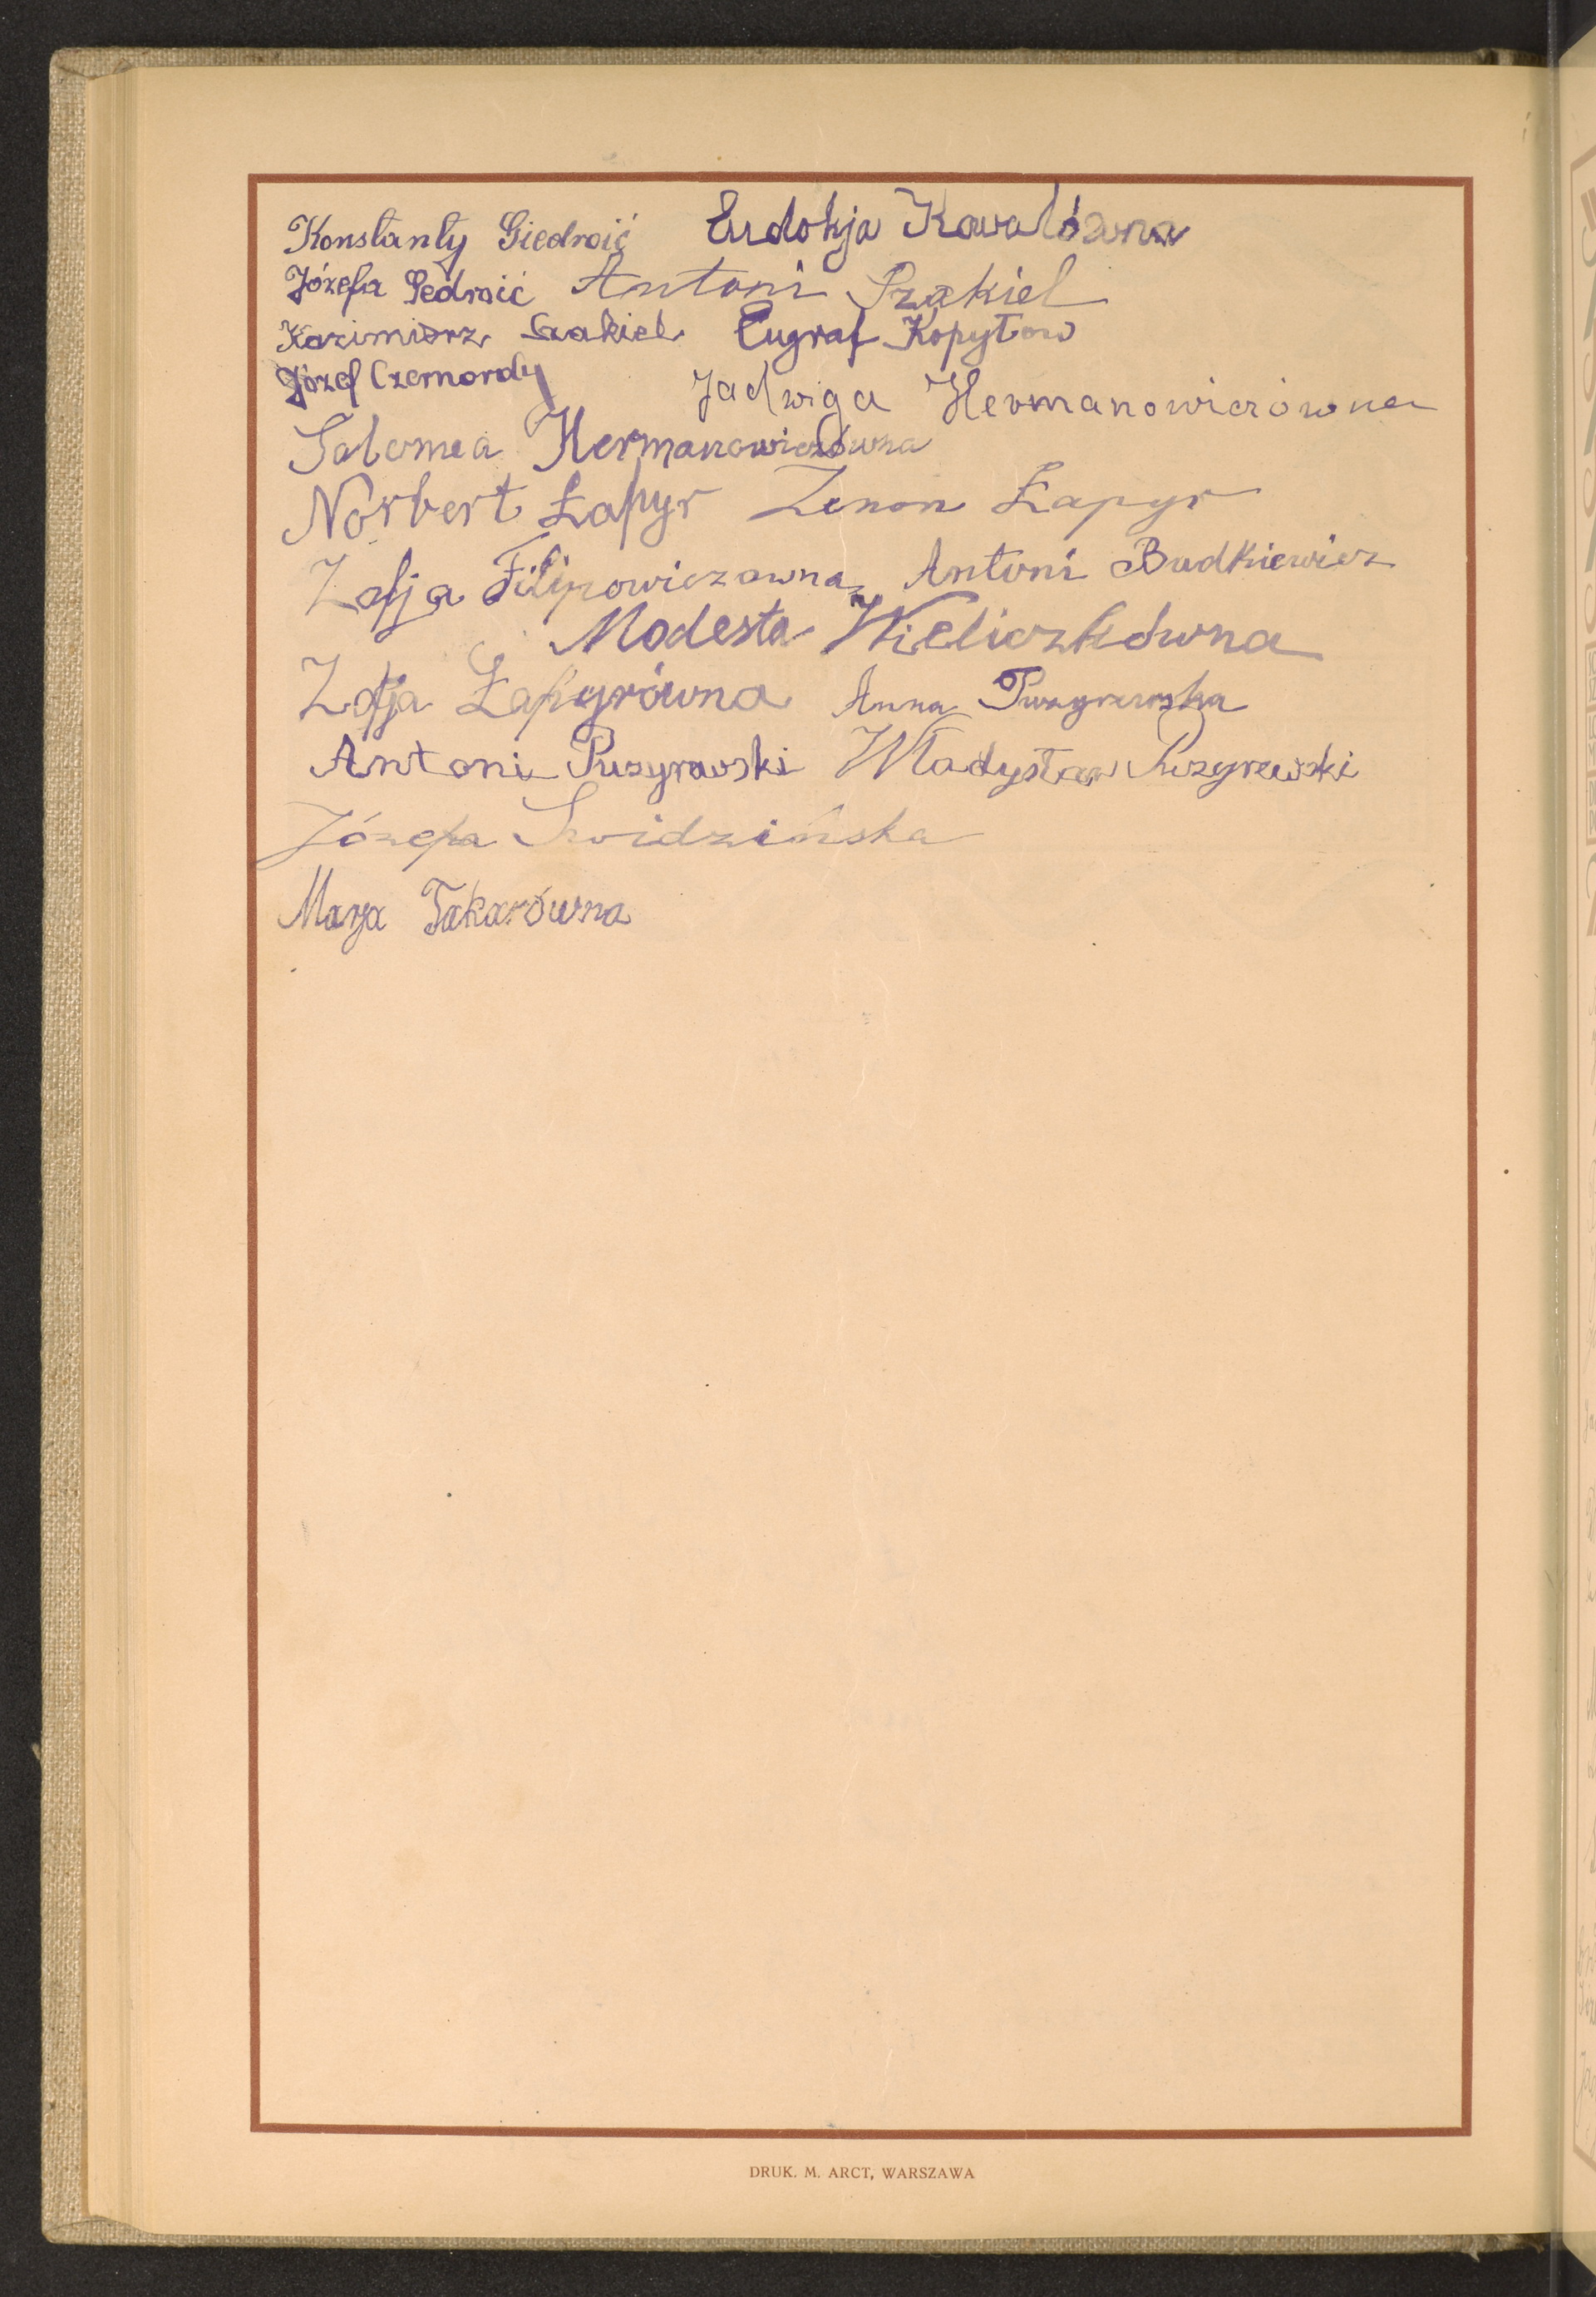 Konstanty Giedroić Eudokja Kowalówna
Józefa Gedroić Antoni Szakiel
Kazimierz Szakiel Eugraf Kopytow
Józef Czernordy Jadwiga Hermanowiczówna
Salomea Hermanowiczówna
Norbert Łapyr Zenon Łapyr
Zofja Filipowiczowna Antoni Budkiewicz
Modesta Wieliczkówna
Zofja Łapyrówna Anna Puzyrewska
Antoni Puzyrewski Władysław Puzyrewski
Józefa Swidzińska
Marja Takarówna
DRUK. M. ARCT, WARSZAWA